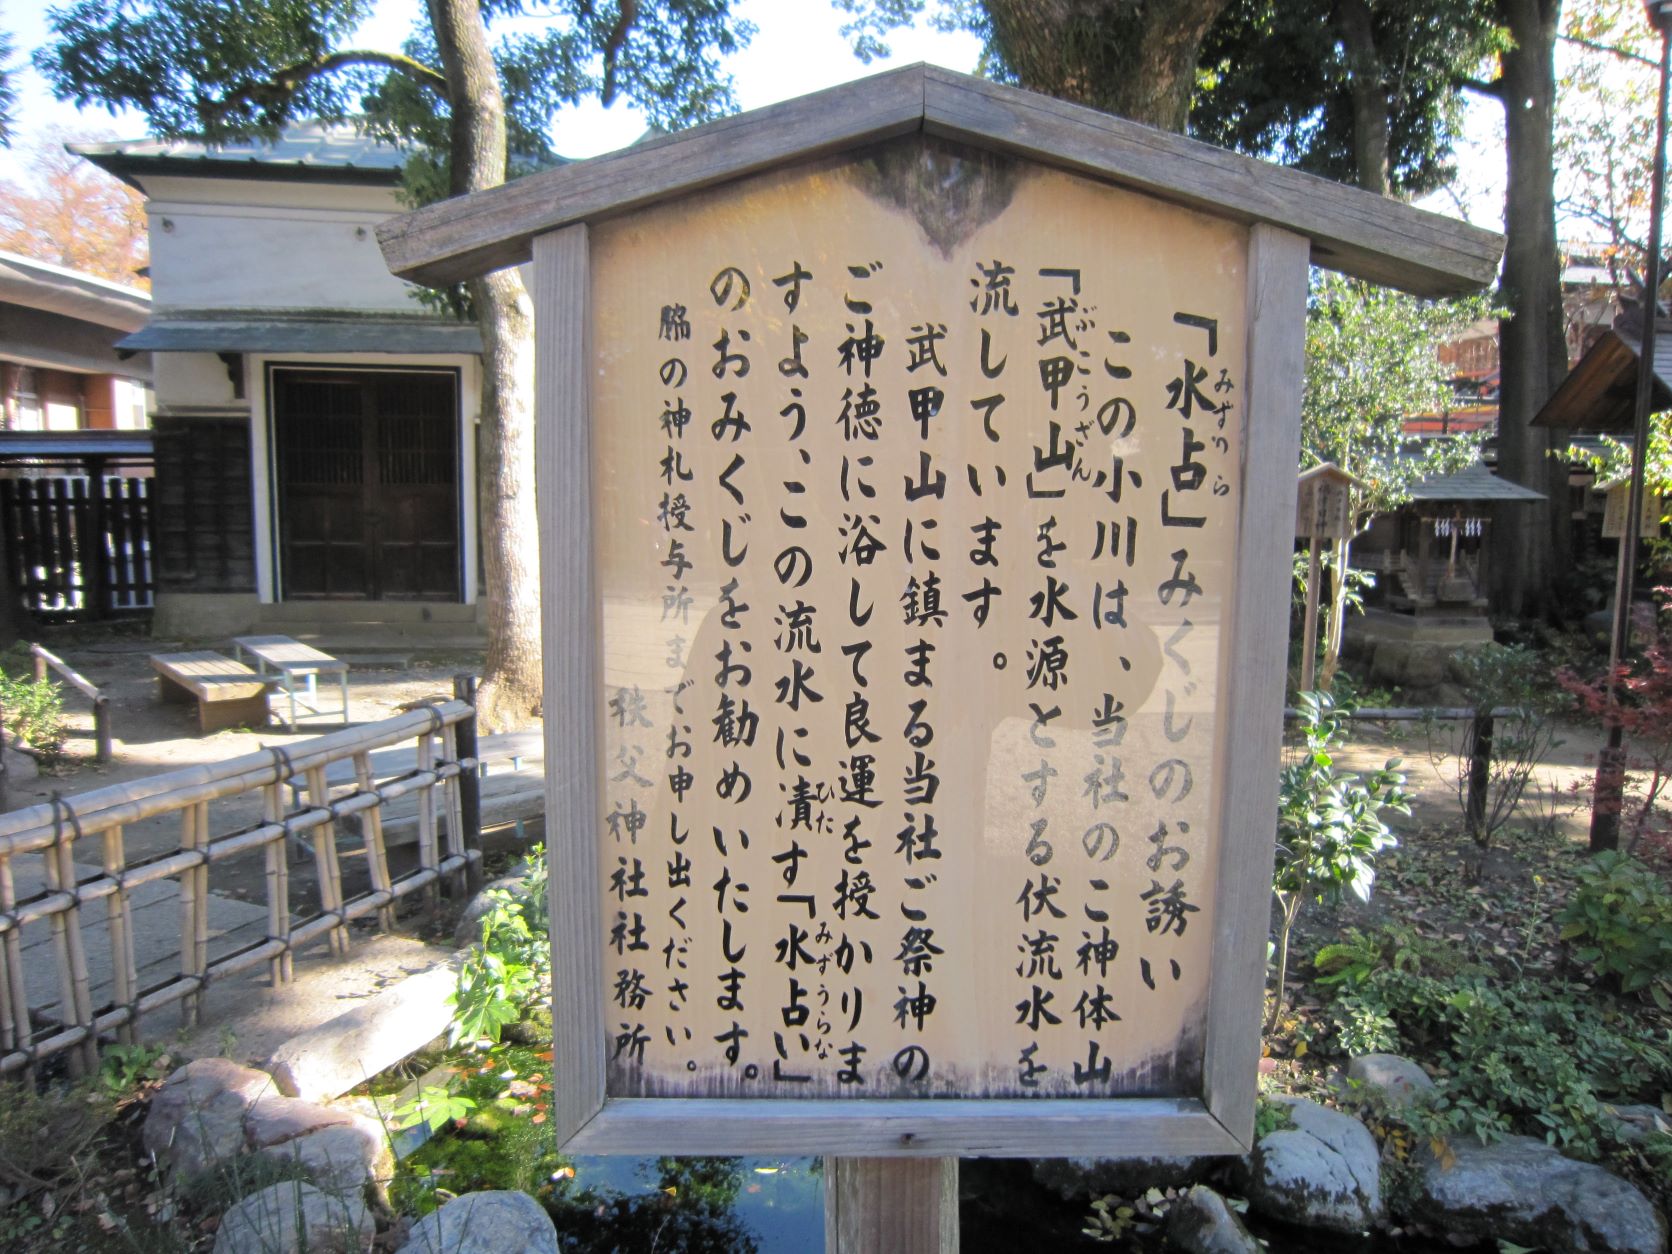 「水占」みくじのお誘い
みずうら
この小川は、当社のご神体山
「武甲山」を水源とする伏流水を
ぶこうざん
流しています。
武甲山に鎮まる当社ご祭神の
ご神徳に浴して良運を授かりま
すよう、この流水に漬す「水占い」
ひた
みずうらな
のおみくじをお勧めいたします。
脇の神札授与所までお申し出ください。
秩父神社社務所